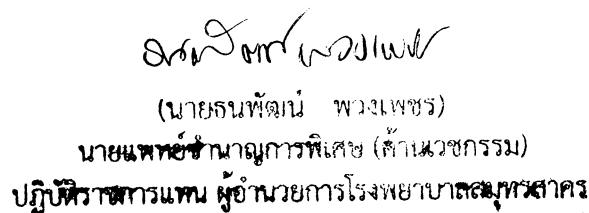 ธนพัฒน์ พวงเพชร
(นายธนพัฒน์ พวงเพชร)
นายแพทย์ชำนาญการพิเศษ (ด้านเวชกรรม)
ปฏิบัติราชการแทน ผู้อำนวยการโรงพยาบาลสมุทรสาคร